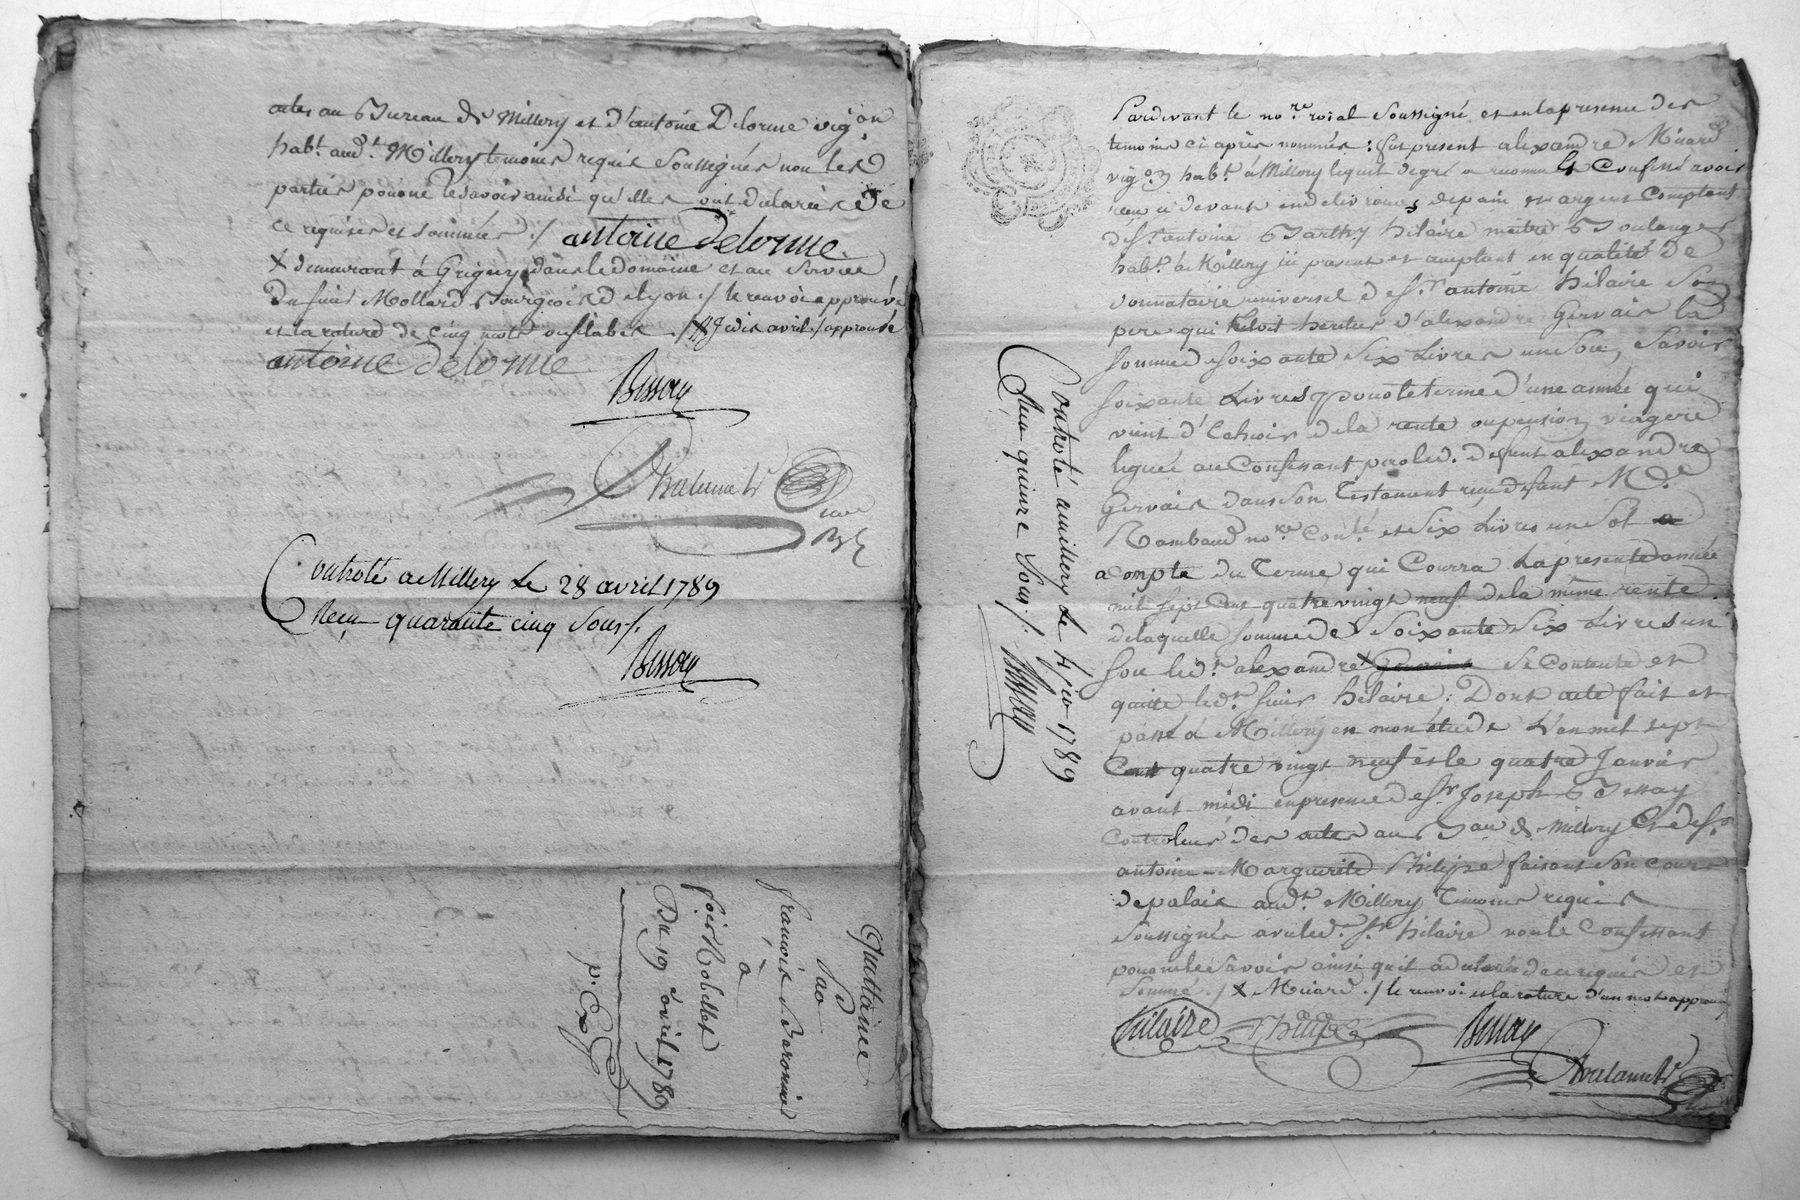 actes au Bureau de Millery et d'antoine Delorme vig.on
hab.t aud.t Millery temoins requis Soussignés non les
parties pour ne le savoir ainsi qu'elles ont declarées de
ce requises et sommées ./ antoine Delorme
X demeurant à Grigny dans le domaine et au Service
du sieur Mollard Bourgeois de lyon ./ le renvoi approuvé
et la rature de cinq mots ou sillabes ./ dix avril ./ approuvé
antoine delorme
Bissay
Controlé a Millery Le 28 avril 1789
Reçu quarante cinq Sous ./.
Bissay
Quittance
par
françois
à
Du 19 avril 1789
p. Ex
Controlé a millery Le 4 jer 1789
Reçu quinze Sous ./.
Bissay
Pardevant le no.re roial Soussigné, et en la presence des
temoins ci après nommés : fut present alexandre Muard
vig.on hab.t à Millery lequel de gré a reconnu & Confessé avoir
reçu ci devant en delivrance de pain et argent Comptant
de s.r antoine Barth.y hilaire maitre Boulanger
hab.t à Millery ici present et acceptant en qualité de
donnataire universel de s.r antoine hilaire Son
pere qui etoit heritier d'alexandre Gervais la
Somme de soixante Six Livres un Sou, Savoir
soixante Livres pour le terme d'une année qui
vient d'echoir de la rente ou pension viagere
leguée au Confessant par led. defunt alexandre
Gervais dans son Testament reçu defunt M.e
Rambaud no.re Con.lé et Six Livres un Sol
a compte du Terme qui Courra la presente année
mil sept Cent quatre vingt neuf de la même rente
de laquelle somme de Soixante Six Livres un
Sou led.t alexandre X Gervais Se Contente et
quitte led.t sieur hilaire : Dont acte fait et
passé à Millery en mon étude L'an mil sept
Cent quatre vingt neuf et le quatre Janvier
avant midi en presence de s.r Joseph Bissay
Controleur des actes au Bau de Millery et de s.r
antoine Marguerite Philipe faisant Son Cours
de palais aud.t Millery Temoins requis
Soussignés avec led. s.r hilaire non le Confessant
pour ne le Savoir ainsi qu'il a declaré de ce requis et
Sommé ./ X Muard ./ le renvoi et la rature d'un mot approuvé
hilaire Philipe Bissay